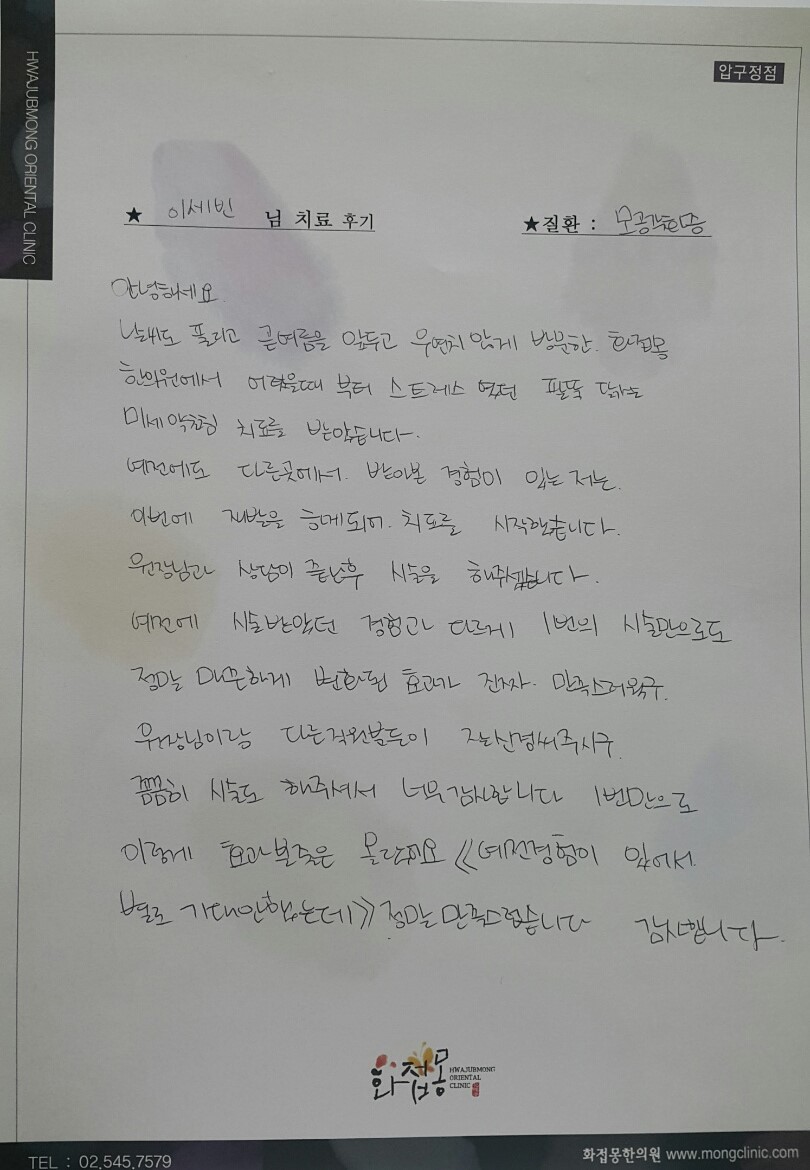 HWAJUBMONG ORIENTAL CLINIC
압구정점
★ 이세빈 님 치료 후기
★질환 : 모공각화증
안녕하세요
날씨도 풀리고 곧여름을 앞두고 우연치 않게 방문한. 화접몽
한의원에서 어렸을때 부터 스트레스 였던 팔뚝 닭살
미세약침 치료를 받았습니다.
예전에도 다른곳에서. 받아본 경험이 있는 저는.
이번에 재발을 하게되어. 치료를 시작했습니다.
원장님과 상담이 끝난후 시술을 해주셨습니다.
예전에 시술받았던 경험과 다르게 1번의 시술만으로도
정말 매끈하게 변화된 효과가 진짜. 만족스러웠구.
원장님이랑 다른직원분들이 신경써주시구.
꼼꼼히 시술도 해주셔서 너무감사합니다 1번만으로
이렇게 효과볼줄은 몰랐어요 《예전경험이 있어서.
별로 기대안했는데》 정말만족스럽습니다 감사합니다.
화접몽
HWAJUBMONG
ORIENTAL
CLINIC
TEL : 02.545.7579
화접몽한의원 www.mongclinic.com